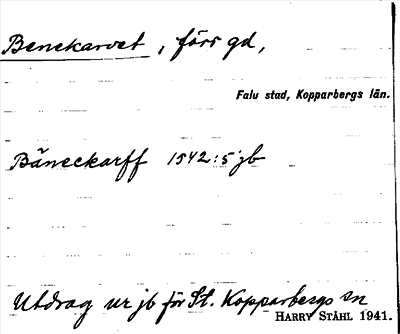 Benekarvet, förs gd,
Falu stad, Kopparbergs län.
Bäneckarff 1542:5 jb
Utdrag ur jb för St. Kopparbergs sn
HARRY STÅHL 1941.